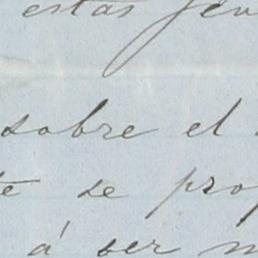 estas
sobre el
te se pro
á ser